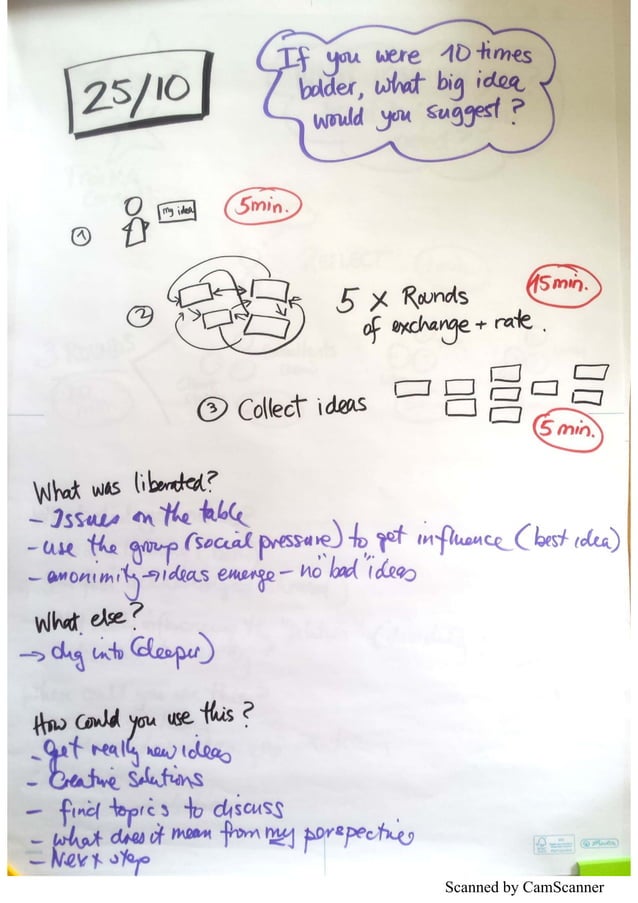 25/10
If you were 10 times
bolder, what big idea
would you suggest?
① my idea 5min.
② 5 x Rounds
of exchange + rate.
15min.
③ Collect ideas
5 min.
What was liberated?
- Issues on the table
- use the group (social pressure) to get influence (best idea)
- anonimity → ideas emerge - no "bad" ideas
What else?
→ dig into (deeper)
How could you use this?
- get really new ideas
- Creative solutions
- find topics to discuss
- what does it mean from my perspective
- Next step
Scanned by CamScanner